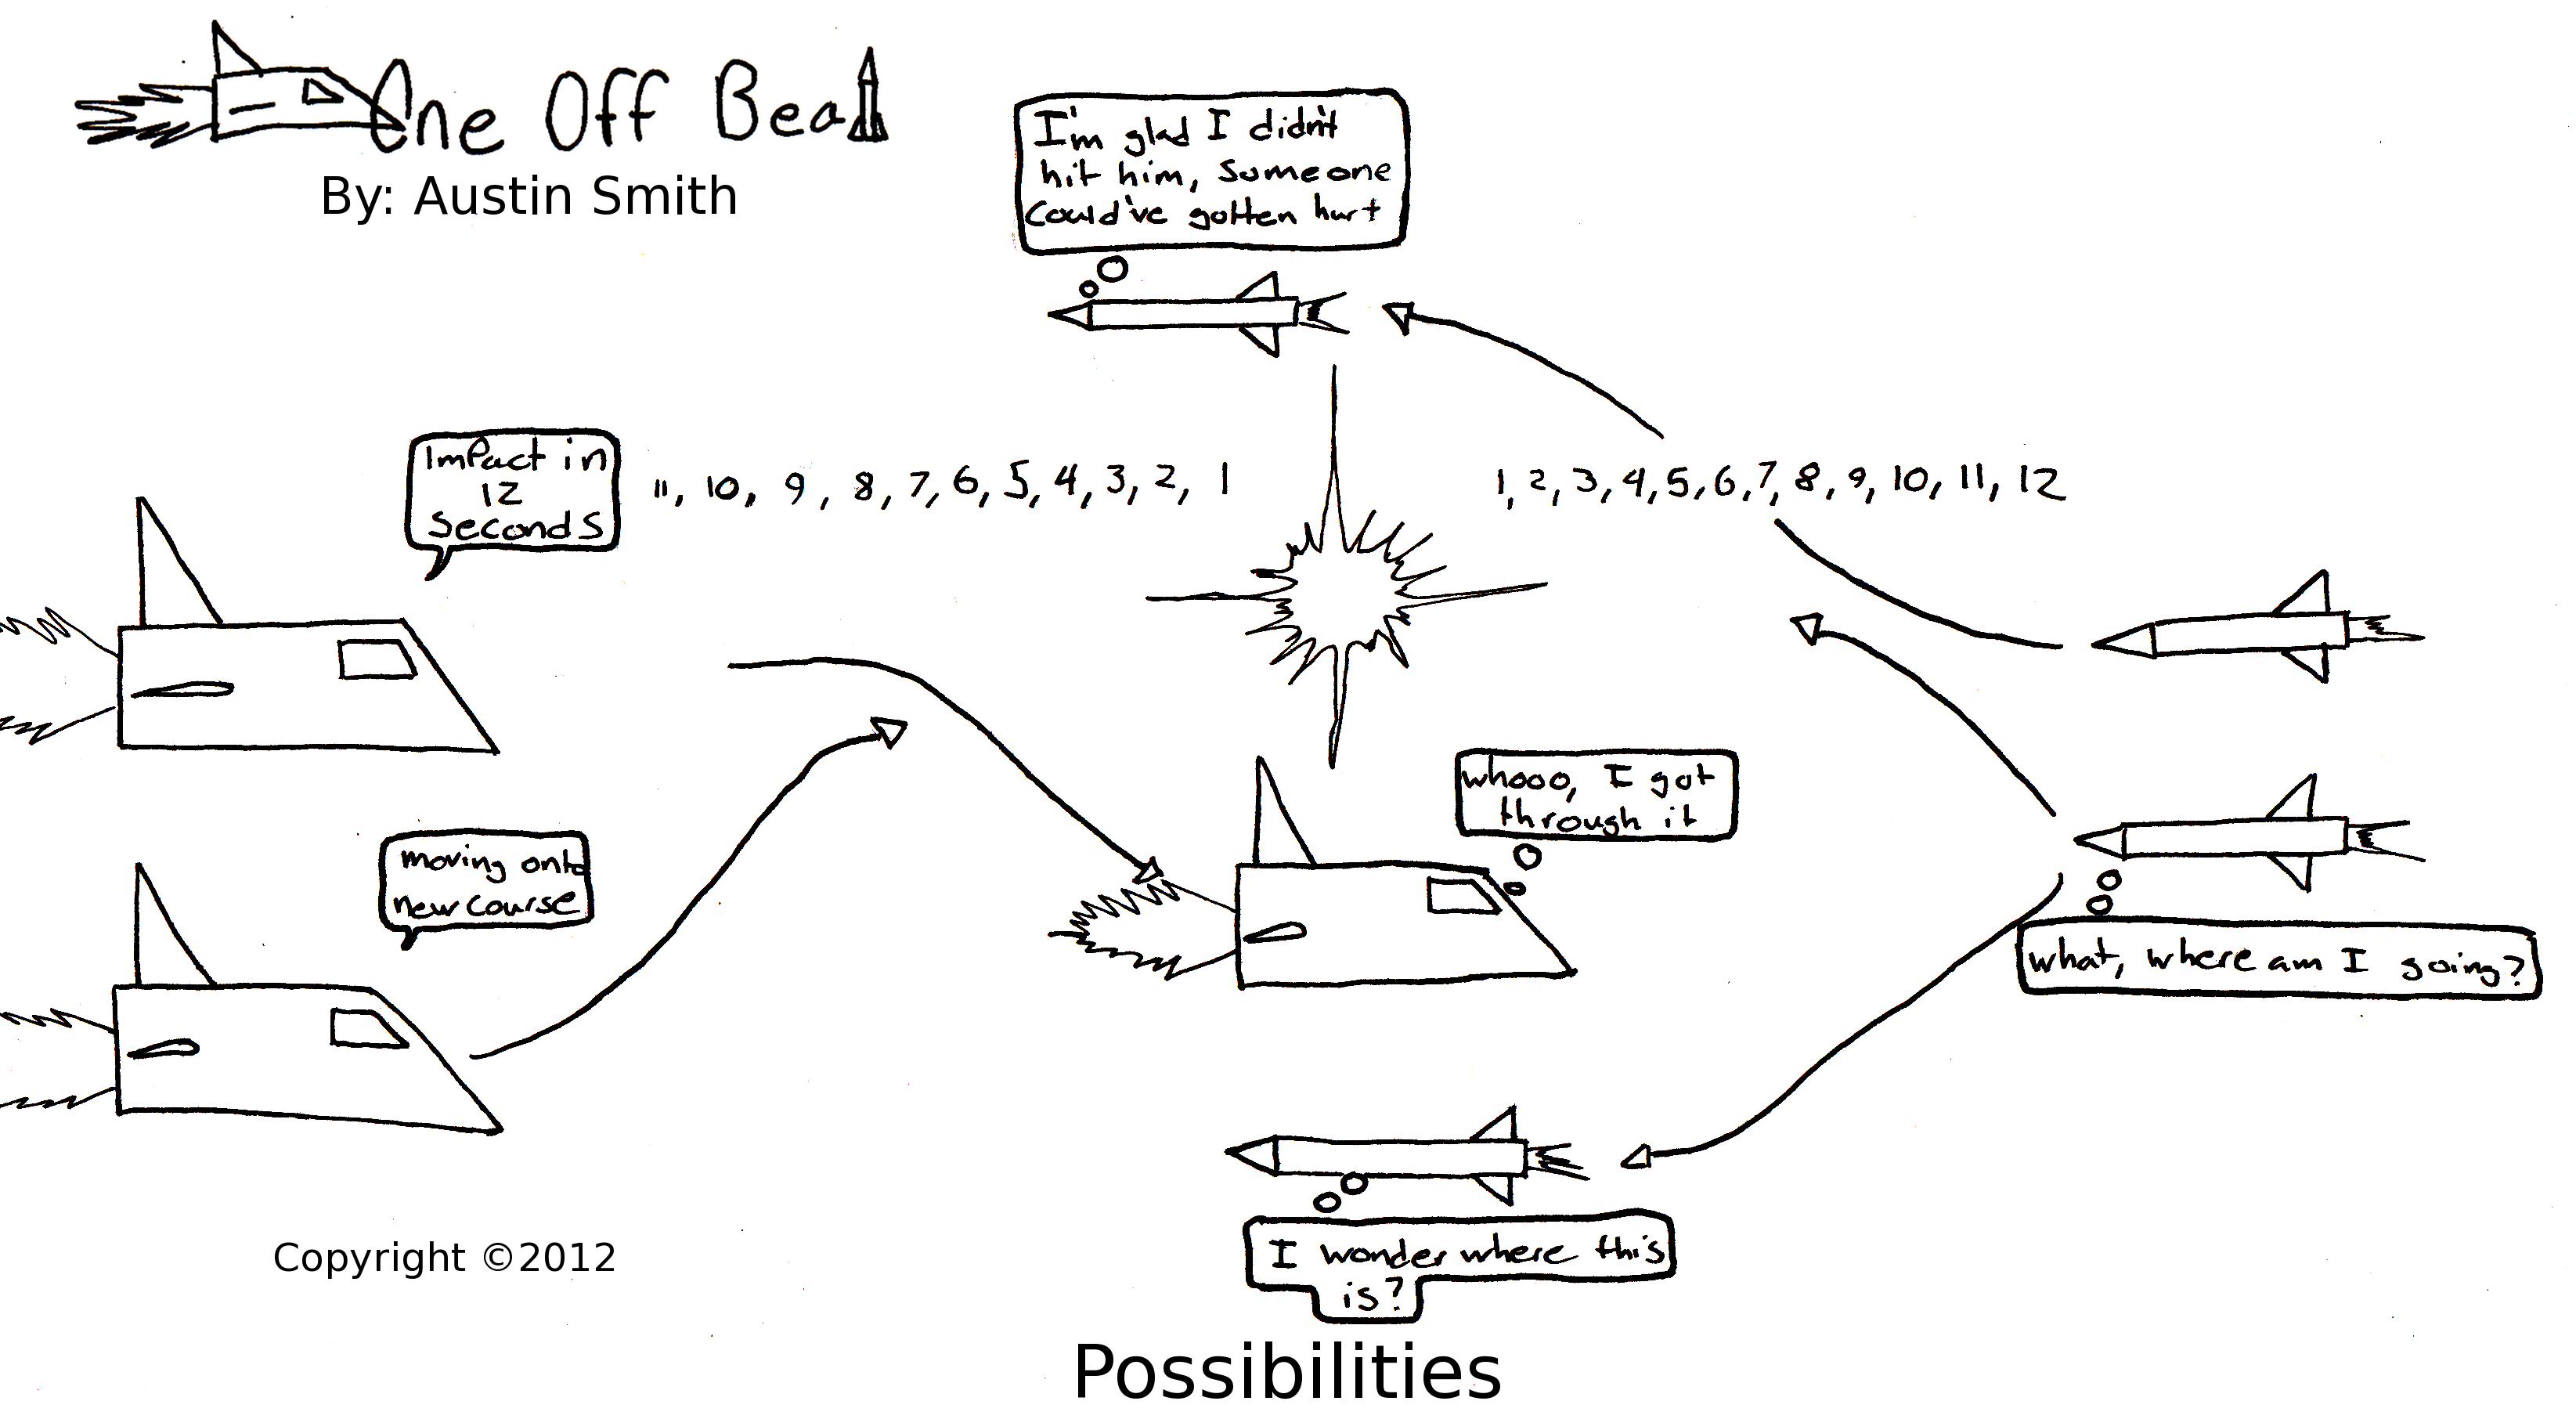 One Off Beat
By: Austin Smith
I'm glad I didn't
hit him, someone
could've gotten hurt
Impact in
12
seconds
11, 10, 9, 8, 7, 6, 5, 4, 3, 2, 1
1, 2, 3, 4, 5, 6, 7, 8, 9, 10, 11, 12
whooo, I got
through it
moving onto
new course
what, where am I going?
I wonder where this
is?
Copyright ©2012
Possibilities